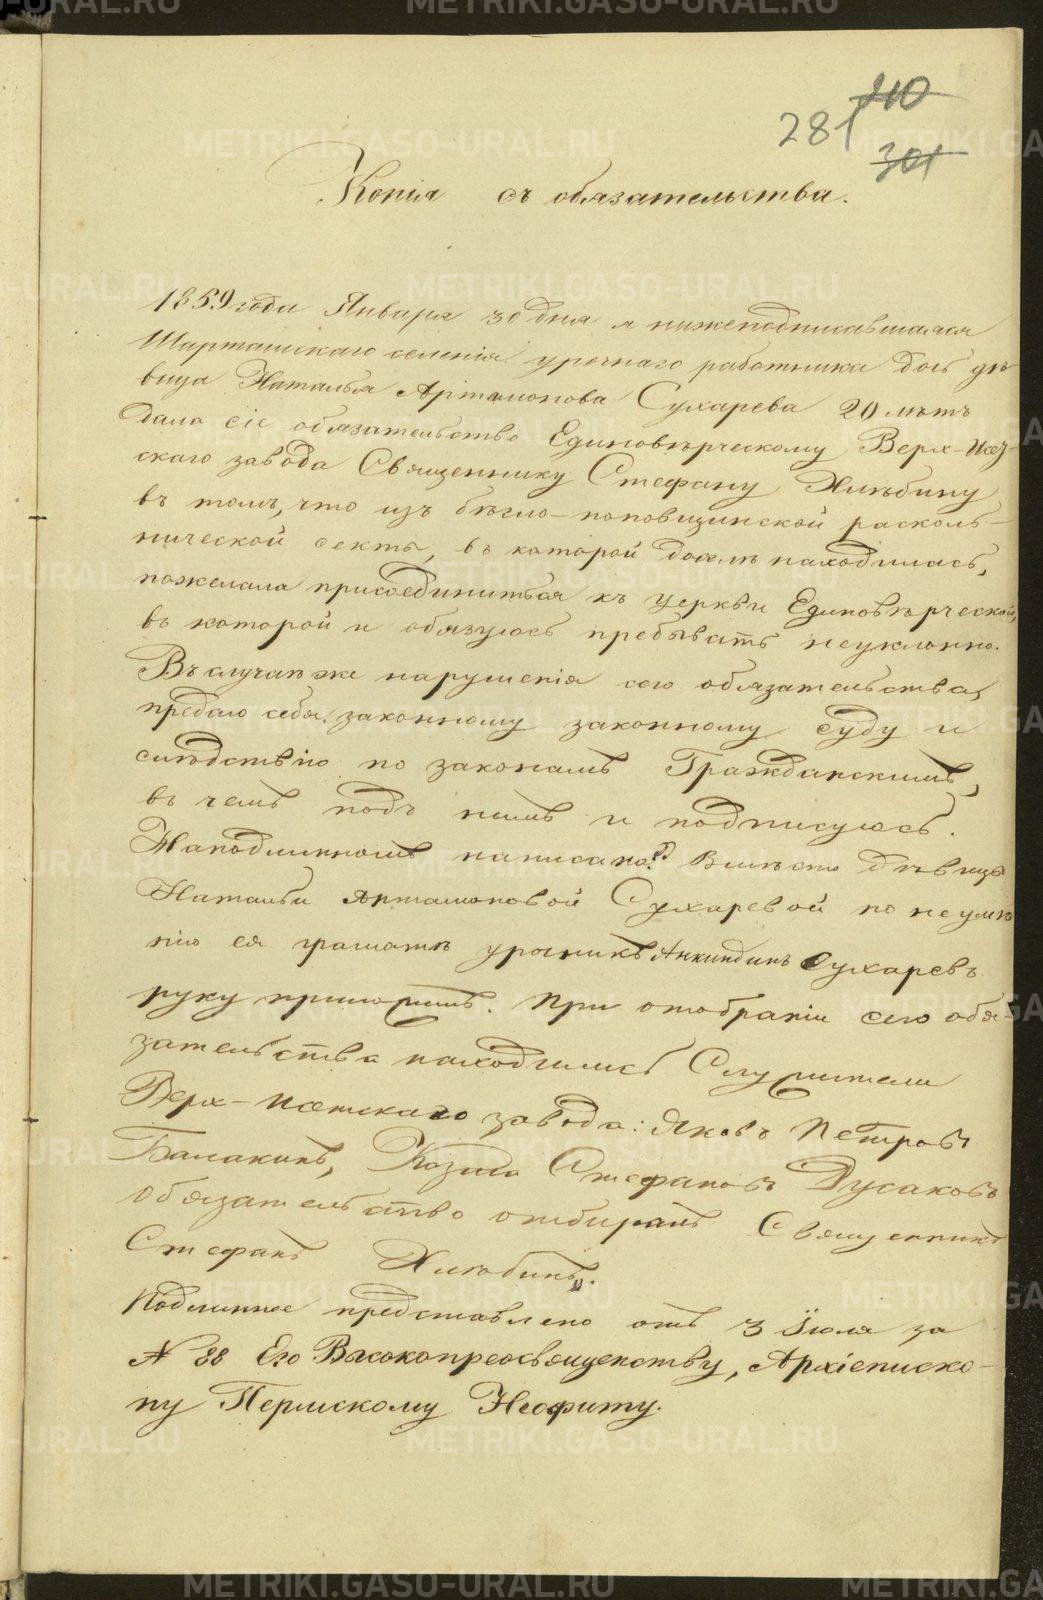 210
281
301
Копія съ обязательства.
1859 года Января 30 дня я нижеподписавшаяся
Шарташскаго селенія урочнаго работника дочь дѣ-
вица Наталья Артамонова Сухарева 20 лѣтъ
дала сіе обязательство Единовѣрческому Верх-Исет-
скаго завода Священнику Стефану Хлѣбину
въ томъ, что изъ бѣгло-поповщинской расколь-
нической секты, въ которой доселѣ находилась,
пожелала присоединиться къ церкви Единовѣрческой,
въ которой и обязуюсь пребывать неуклонно.
Въ случаѣ же нарушенія сего обязательства,
предаю себя законному законному суду и
слѣдствію по законамъ Гражданскимъ,
въ чемъ подъ симъ и подписуюсь.
На подлинномъ написано: Вмѣсто дѣвицы
Натальи Артамоновой Сухаревой по неумѣ-
нію ея грамотѣ урочникъ Анкиндинъ Сухаревъ
руку приложилъ. При отобраніи сего обя-
зательства находились Служители
Верх-Исетскаго завода: Яковъ Петровъ
Балакинъ, Козьма Стефановъ Дусаковъ
Обязательство отбиралъ Священникъ
Стефанъ Хлѣбинъ".
Подлинное представлено отъ 3 Іюля за
№ 88 Его Высокопреосвященству, Архіеписко-
пу Пермскому Неофиту.
METRIKI.GASO-URAL.RU